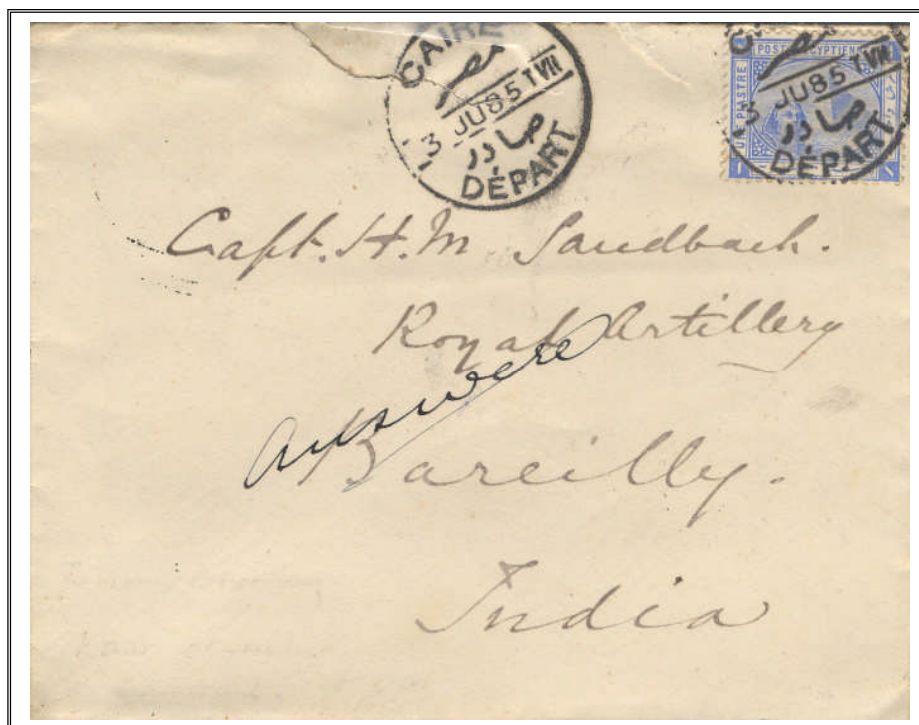 CAIRE
مصر
3 JU 85 T VII
صادر
DÉPART
POSTES EGYPTIENNES
UNE PIASTRE
3 JU 85 T VII
صادر
DÉPART
Capt. H. M Sandbach.
Royal Artillery
answered
Bareilly.
India